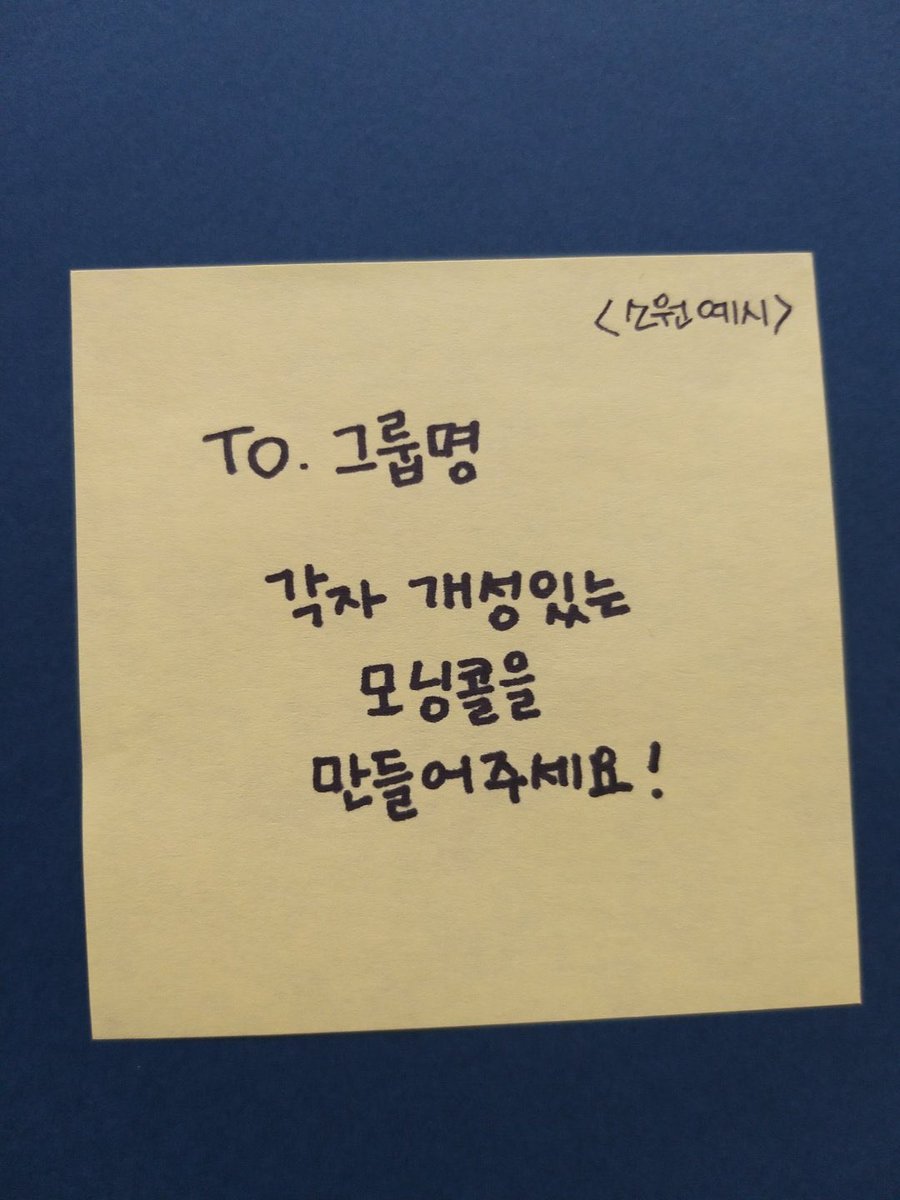 <소원예시>
To. 그룹명
각자 개성있는
모닝콜을
만들어주세요!